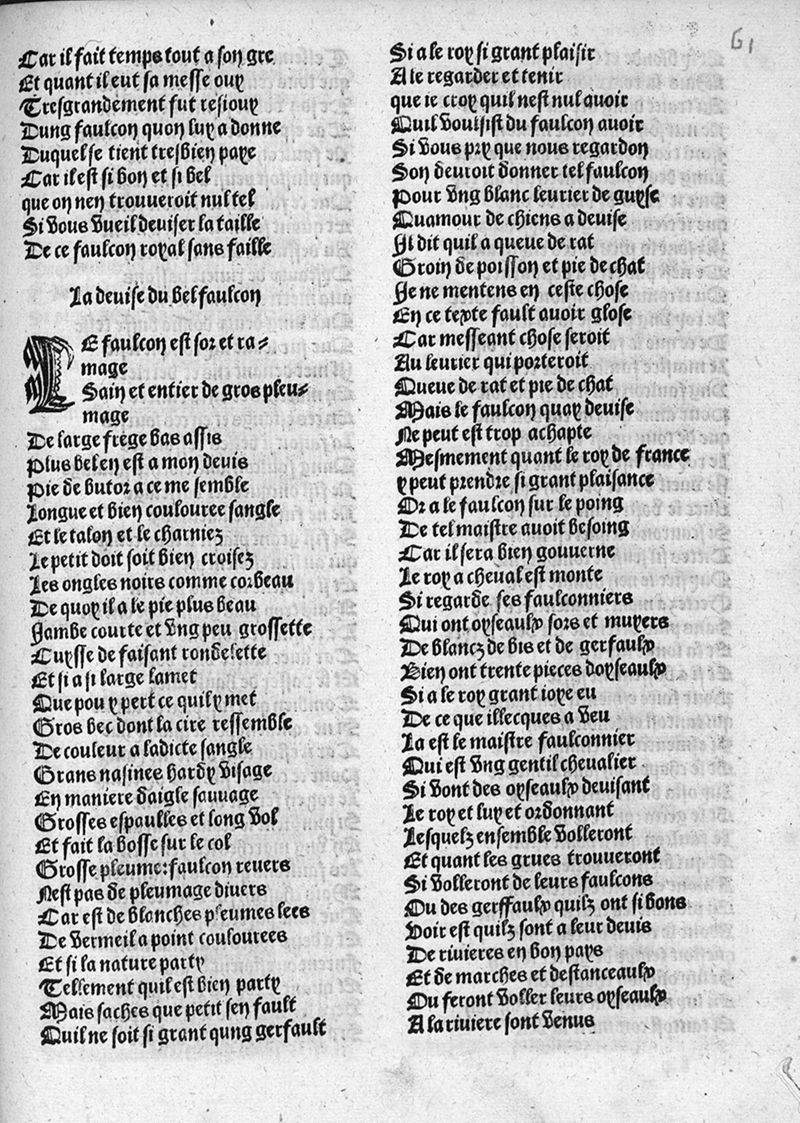 Car il fait temps tout a son gre
Et quant il eut sa messe ouy
Tresgrandement fut resiouy
Dung faulcon quon luy a donne
Duquel se tient tresbien paye
Car il est si bon et si bel
que on nen trouueroit nul tel
Si vous vueil deuiser la taille
De ce faulcon royal sans faille
La deuise du bel faulcon
LE faulcon est sor et ra-
mage
Sain et entier de gros pleu-
mage
De large frege bas assis
Plus bel en est a mon deuis
Pie de butor a ce me semble
Longue et bien coulouree sangle
Et le talon et le charniez
Le petit doit soit bien croisez
Les ongles noirs comme corbeau
De quoy il a le pie plus beau
Jambe courte et vng peu grossette
Cuysse de faisant rondelette
Et si a si large lamet
Que pou y pert ce quil y met
Gros bec dont la cire ressemble
De couleur a ladicte sangle
Grans nasines hardy visage
En maniere daigle sauuage
Grosses espaulles et long vol
Et fait la bosse sur le col
Grosse pleume: faulcon reuers
Nest pas de pleumage diuers
Car est de blanches pleumes lees
De vermeil a point coulourees
Et si la nature party
Tellement quil est bien party
Mais saches que petit sen fault
Quil ne soit si grant qung gerfault
Si a le roy si grant plaisir
A le regarder et tenir
que ie croy quil nest nul auoir
Quil voulsist du faulcon auoir
Si vous pry que nous regardon
Son deuroit donner tel faulcon
Pour vng blanc leurier de guyse
Quamour de chiens a deuise
Il dit quil a queue de rat
Groin de poisson et pie de chat
Je ne mentens en ceste chose
En ce texte fault auoir glose
Car messeant chose seroit
Au leurier qui porteroit
Queue de rat et pie de chat
Mais le faulcon quay deuise
Ne peut est trop achapte
Mesmement quant le roy de france
y peut prendre si grant plaisance
Or a le faulcon sur le poing
De tel maistre auoit besoing
Car il sera bien gouuerne
Le roy a cheual est monte
Si regarde ses faulconniers
Qui ont oyseaulx sors et muyers
De blancz de bis et de gerfaulx
Bien ont trente pieces doyseaulx
Si a le roy grant ioye eu
De ce que illecques a veu
La est le maistre faulconnier
Qui est vng gentil cheualier
Si vont des oyseaulx deuisant
Le roy et luy et ordonnant
Lesquelz ensemble volleront
Et quant les grues trouueront
Si volleront de leurs faulcons
Ou des gerffaulx quilz ont si bons
Voir est quilz sont a leur deuis
De riuieres en bon pays
Et de marches et destanceaulx
Ou feront voller leurs oyseaulx
A la riuiere sont venus
61